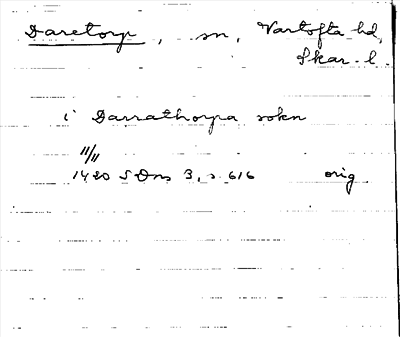 Daretorp, sn, Vartofta hd,
Skar. l.
i Darrathorpa sokn
11/11
1420 SDns 3, s. 616 orig